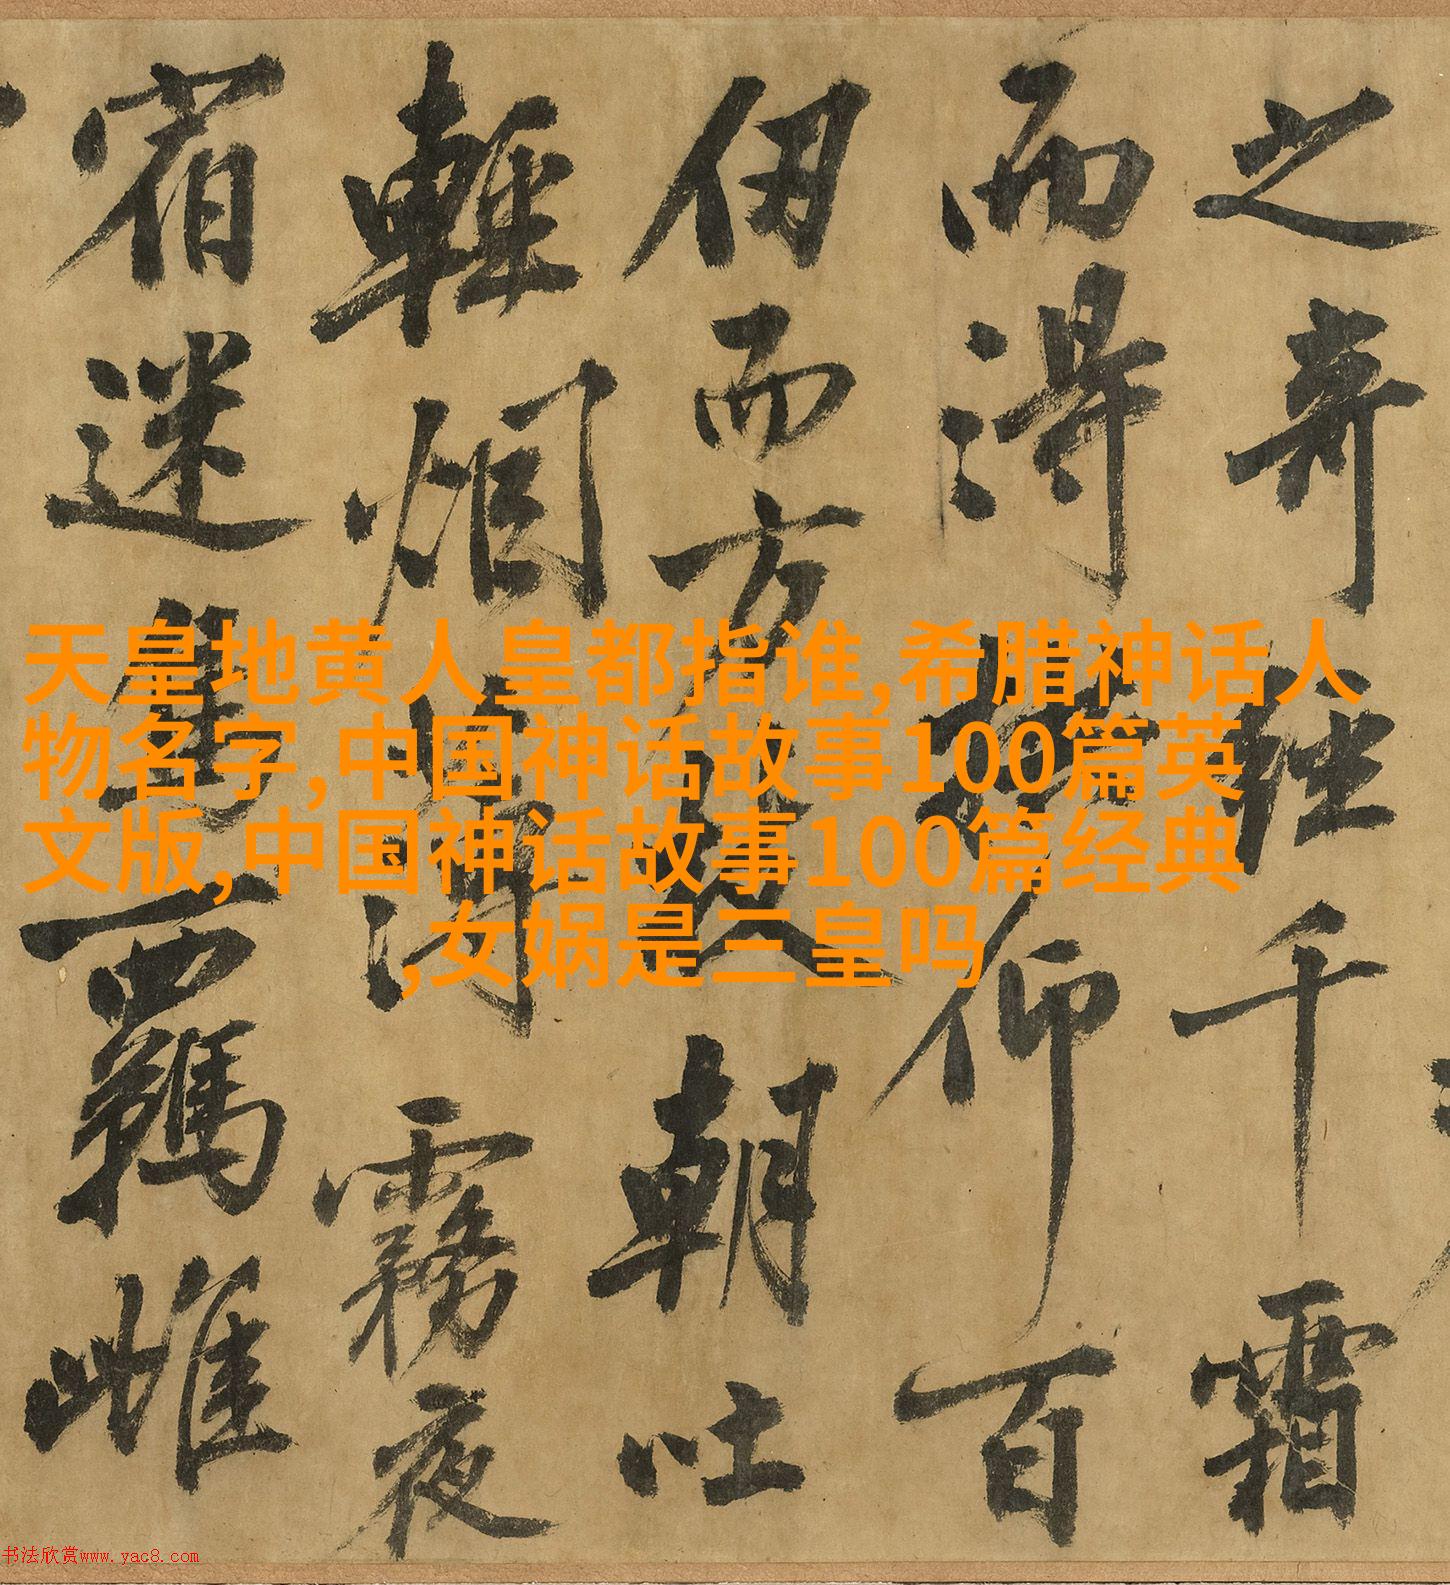 之奇經千霜
而得仰百
仞而方朝吐
輕烟薄霧夜
宿迷鳥羈雌
天皇地黄人皇都指谁,希腊神话人
物名字,中国神话故事100篇英
文版,中国神话故事100篇经典
,女娲是三皇吗
书法欣赏www.yac8.com